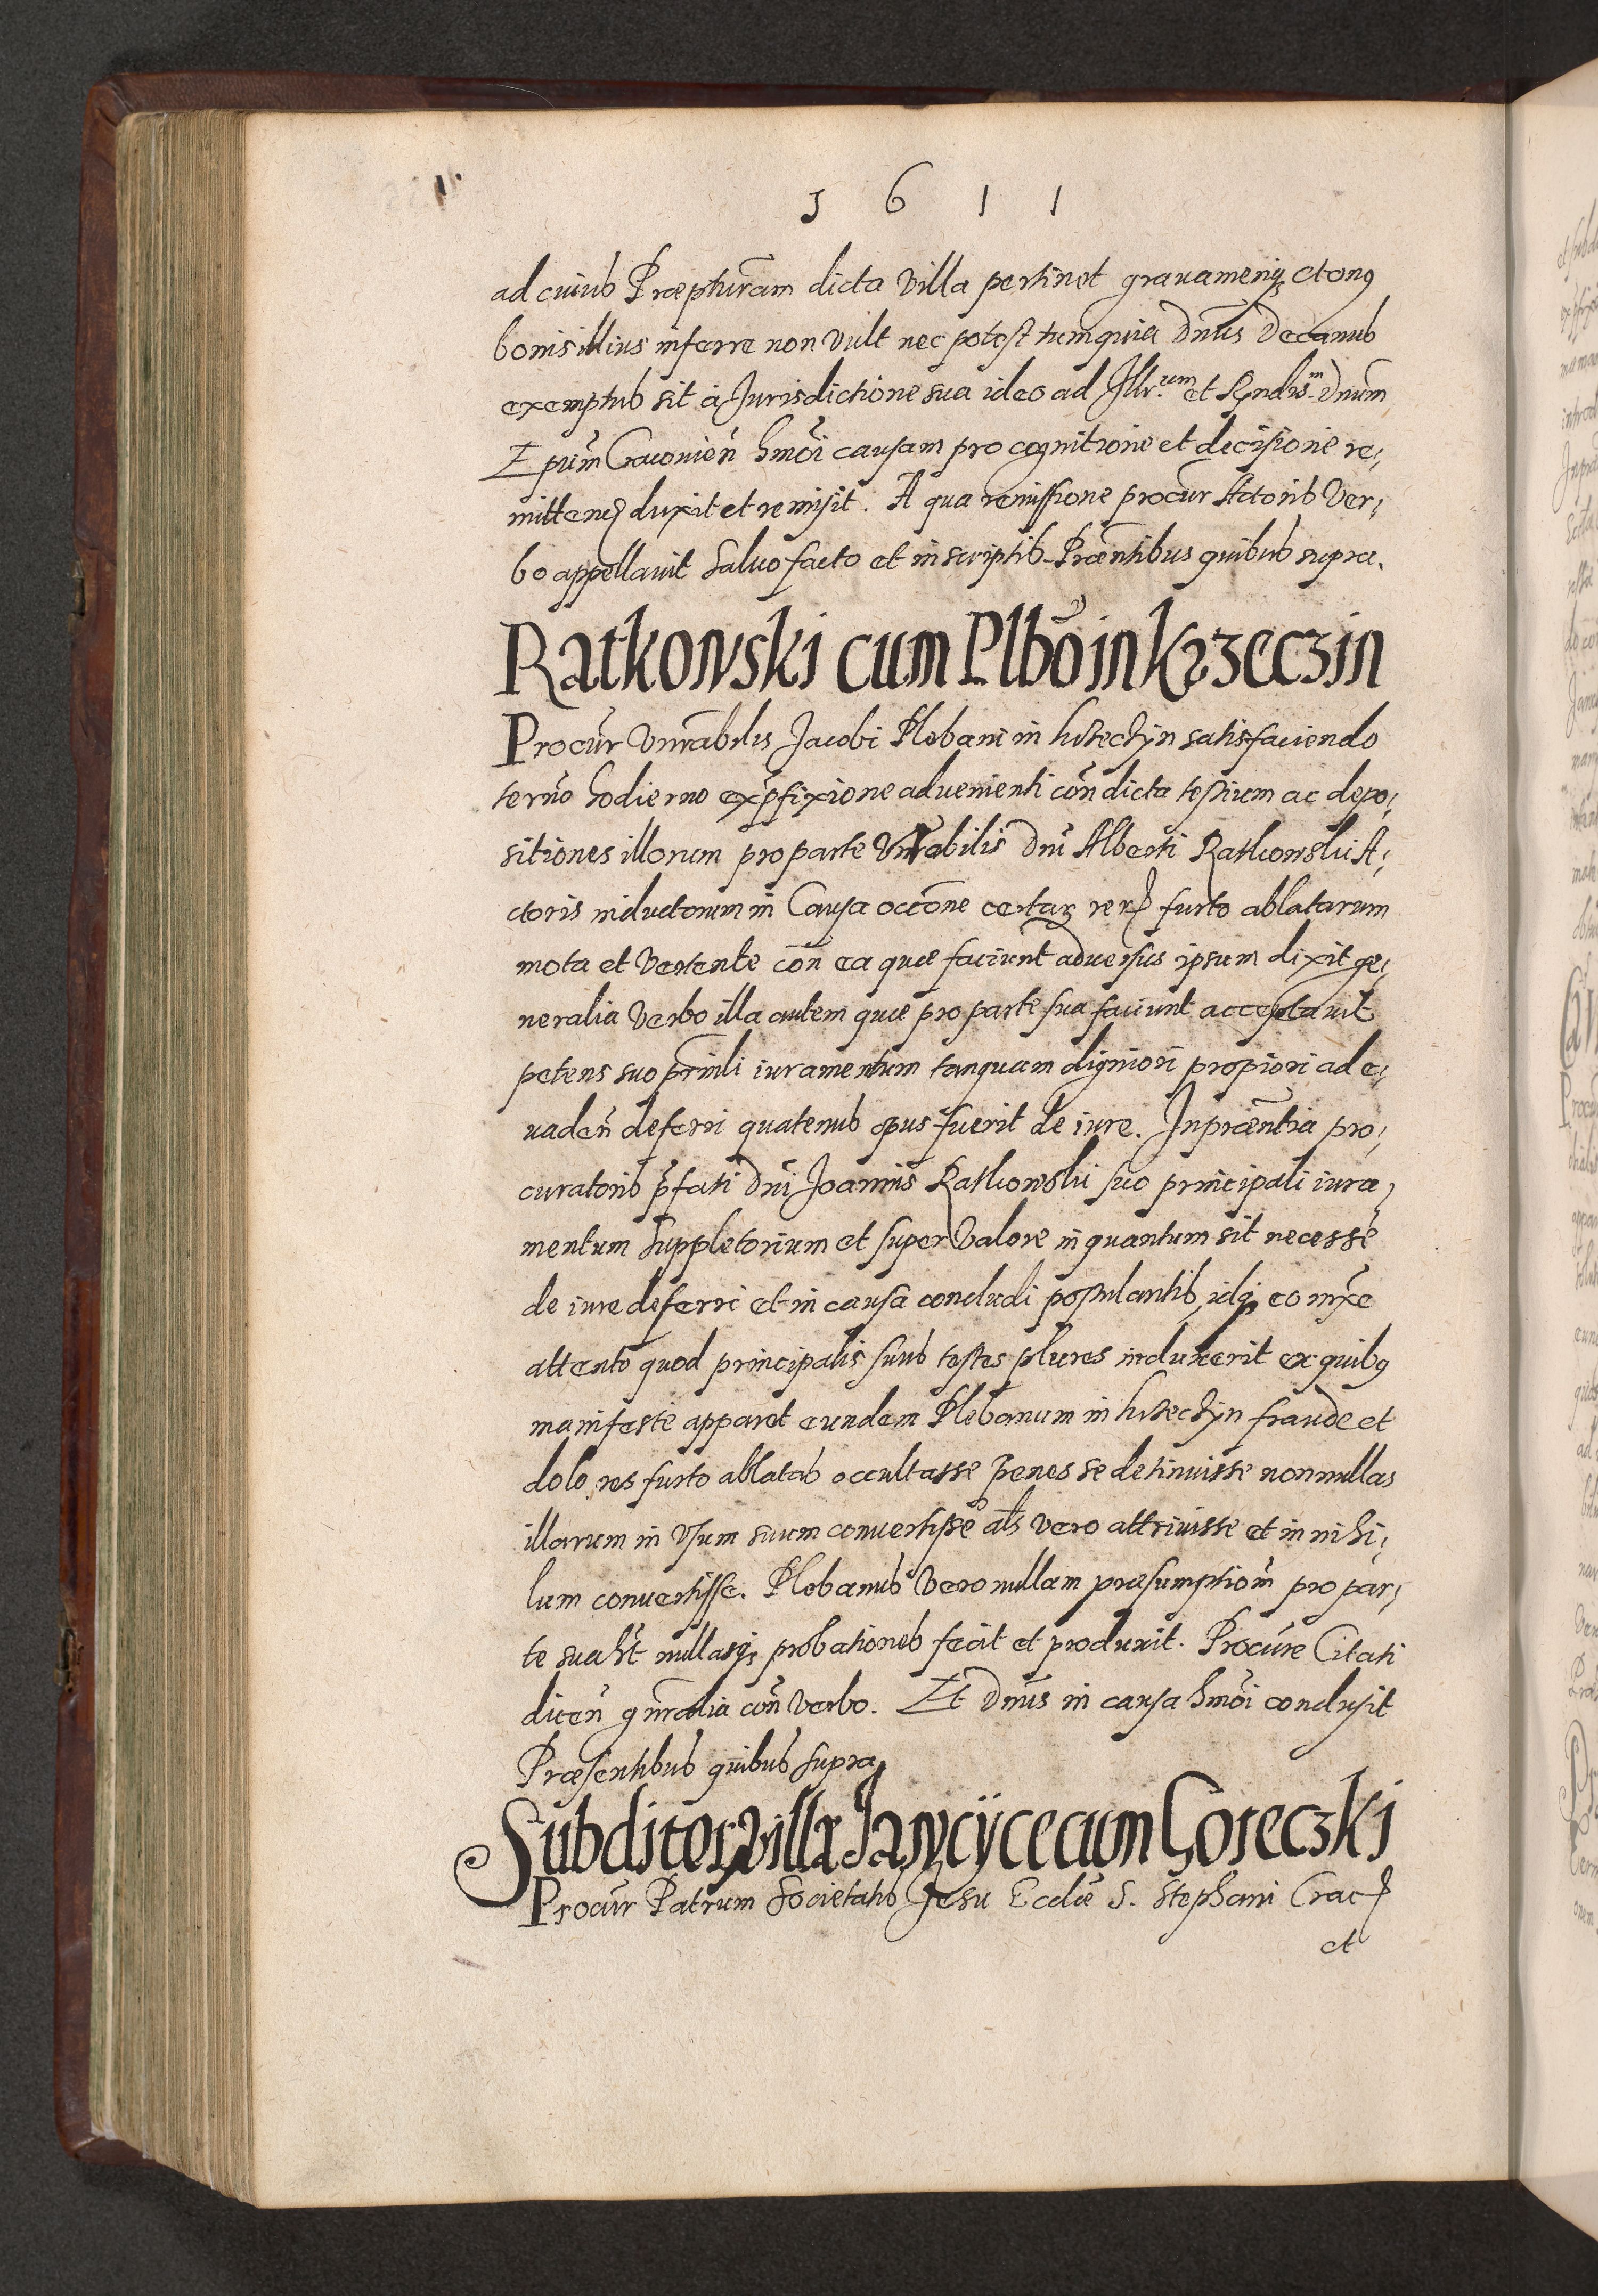 1611
ad cuius Præpturam dicta villa pertinet gravamenq; et onꝰ
bonis illius inferre non vult nec potest tum quia Dnus Decanus
exemptus sit à Jurisdictione sua ideo ad Illr.um et Rndis.m Dnum
Epūm Cracovien̄ hmōi causam pro cognitione et decisione re,
mitten̄ duxit et remisit. A qua remissione procur̄ Actoris ver,
bo appellavit salvo facto et in scriptis Præntibus quibus supra.
Ratkowski cum Plbō in Krzeczin
Procūr Vnrabilis Jacobi Plebani in Krzeczyn satisfaciendo
term̄o hodierno ex p̄fixione advenienti con̄ dicta testium ac depo,
sitiones illorum pro parte Vnrabilis Dni Alberti Ratkowski A,
ctoris inductorum in Causa occōne certaꝝ rerꝝ furto ablatarum
mota et vertente con̄ ea quæ faciunt adversus ipsum dixit ge,
neralia verbo illa autem quæ pro parte sua faciunt acceptavit
petens suo prinli iuramentum tanquam digniori propiori ad e,
vaden̄ deferri quatenus opus fuerit de iure. In præntia pro,
curatoris p̄fati Dni Joannis Ratkowski suo principali iura,
mentum suppletorium et super valore in quantum sit necesse
de iure deferri et in causa concludi postulantis, idq; eo mxe
attento quod principalis suus testes plures induxerit ex quibꝰ
manifeste apparet eundem Plebanum in Krzeczyn fraude et
dolo res furto ablatas occultasse penes se detinuisse nonnullas
illarum in usum suum convertisse als vero attrivisse et in nihi,
lum convertisse. Plebanus vero nullam præsumption̄ pro par,
te sua hēt nullasq; probationes fecit et produxit. Procūre Citati
dicen̄ gnralia con̄ verbo. Et Dnus in causa hmōi conclusit
Præsentibus quibus supra
Subditoꝝ villæ Janczÿce cum Goreczki
Procūr Patrum Societatis Jesu Ecclæ S. Stephani Crac
et